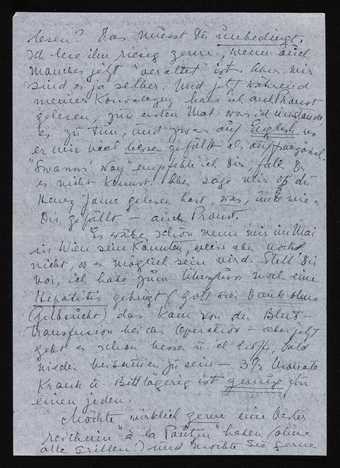 lesen? Das müsst Ihr unbedingt.
Ich lese ihn riesig gerne, wenn auch
manches jetzt veraltet ist. Aber wir
sind es ja selber. Und jetzt während
meiner Konvaleszenz habe ich auch Proust
gelesen, zum ersten Mal war ich imstande
es zu tun, und zwar auf English wo
er mir noch besser gefällt als auf französ.
"Swann's Way" empfehle ich Dir falls Du
es nicht kennst. Aber sage mir ob Du
Henry James gelesen hast, was, und wie
Dir gefällt — auch Proust.
Es wäre schön wenn wir im Mai
in Wien sein könnten, weiss aber noch
nicht, ob es möglich sein wird. Stell Dir
vor, ich habe zum Überfluss noch eine
Hepatitis gehabt (
(Gelbsucht) das kam von der Blut-
transfusion bei der Operation — aber jetzt
geht es schon besser u. ich hoffe, bald
wieder beisammen zu sein — 3½ Monate
krank u. bettlägerig ist genug für
einen jeden.
Möchte wirklich gerne eine
"à la" haben (ohne
alle Grillen) und möchte Sie gerne